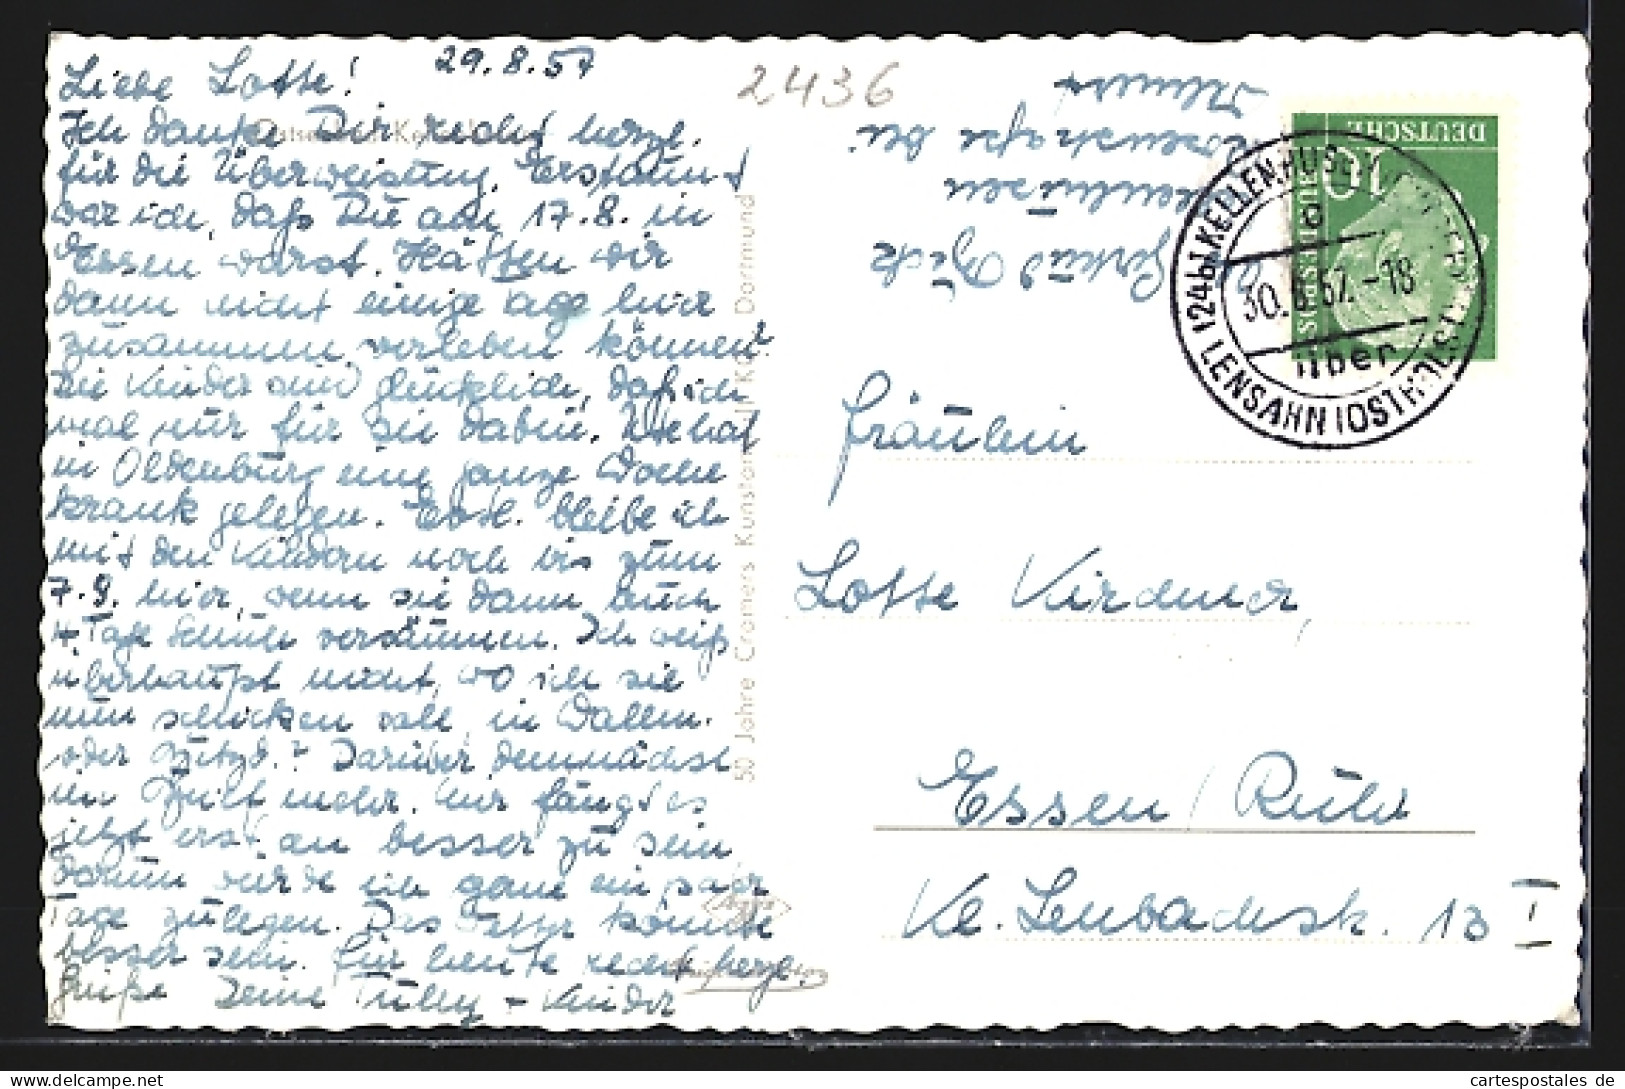 29.8.57
Liebe Lotte!
Ich danke Dir recht herzl.
für die Überweisung. Erstaunt
war ich, daß Du am 17.8. in
Essen warst. Hätten wir
dann nicht einige Tage hier
zusammen verleben können?
Die Kinder sind glücklich, daß ich
mal nur für sie da bin. Ute hat
in Oldenburg eine ganze Woche
krank gelegen. Evtl. bleibe ich
mit den Kindern noch bis zum
7.9. hier, wenn sie dann auch
4 Tage Schule versäumen. Ich weiß
überhaupt nicht, wo ich sie
nun schicken soll, in
oder Darüber demnächst
mehr. Mir fängt es
jetzt erst an besser zu sein,
darum würde ich gerne ein paar
Tage zulegen. Das Wetter könnte
besser sein. Für heute recht herzl.
Grüße Deine Tully + Kinder
2436
50 Jahre Cramers Kunstanstalt KG, Dortmund
DEUTSCHE
BUNDESPOST
10
(24b) KELLENHUSEN
a
30.8.57.-18
über
LENSAHN (OSTHOLST)
Fräulein
Lotte Kirchner,
Essen / Ruhr
Kl. Lenbachstr. 13 I
cartespostales de